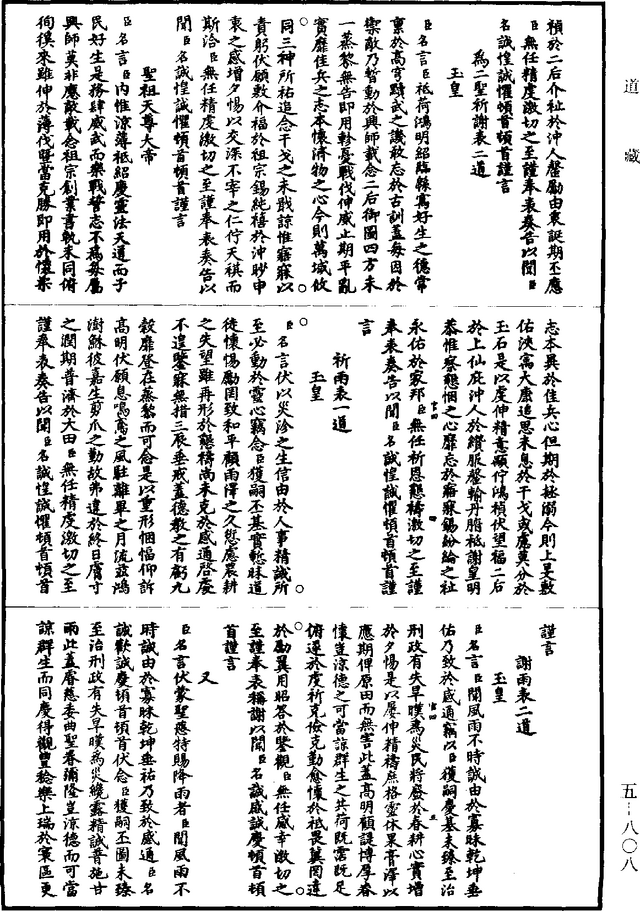 道藏
禎於二后介祉於沖人罄勵由衷誕期丕應
臣無任精虔激切之至謹奉表奏告以聞臣
名誠惶誠懼頓首頓首謹言
為二聖祈謝表二道
玉皇
臣名言臣祗荷鴻明紹臨縣寓好生之德常
禀於高穹黷武之譏敢忘於古訓蓋每因於
禦敵乃暫動於興師載念二后御圖四方未
一蒸黎無告即用軫憂戰伐伸威止期平亂
實靡佳兵之志本懷濟物之心今則萬域攸
同三神所祐追念干戈之未戢諒惟寤寐以
責躬伏願敷介福於祖宗錫純禧於沖眇申
衷之感增夕惕以交深不宰之仁佇天祺而
斯洽臣無任精虔激切之至謹奉表奏告以
聞臣名誠惶誠懼頓首頓首謹言
聖祖天尊大帝
臣名言臣內惟涼薄祗紹慶靈法天道而子
民好生是務肆威武而樂戰誓志不為每屬
興師莫非應敵載念祖宗創業書軌未同俯
徇徯來雖伸於薄伐暨當克勝即用於懷柔
志本異於佳兵心但期於拯溺今則上旻敷
佑浹寓大康追思未息於干戈或慮莫分於
玉石是以虔伸精意顒佇鴻禎伏望福二后
於上仙庇沖人於纘服罄輸丹腑祗謝皇明
恭惟察懇悃之心靡忘於寤寐錫紛綸之祉
永佑於家邦臣無任祈恩懇禱激切之至謹
奉表奏告以聞臣名誠惶誠懼頓首頓首謹
言
祈雨表一道
玉皇
臣名言伏以災沴之生信由於人事精誠所
至必動於靈心竊念臣獲嗣丕基實慙昧道
徒懷惕勵罔致和平顧雨澤之久愆慮農耕
之失望雖再形於懇禱尚未克於感通啓處
不遑鑒寐無措三辰垂戒蓋德教之有虧九
穀靡登在蒸黎而可念是以重形悃愊仰訴
高明伏願息鳴鳶之風駐離畢之月流茲鴻
澍穌彼嘉生剪爪之勤故弗違於終日膚寸
之潤期普濟於大田臣無任精虔激切之至
謹奉表奏告以聞臣名誠惶誠懼頓首頓首
謹言
謝雨表二道
玉皇
臣名言臣聞風雨不時誠由於寡昧乾坤垂
佑乃致於感通竊以臣獲嗣慶基未臻至治
刑政有失旱暵為災民將盛於春耕心實增
於夕惕是以屢伸精禱庶格靈休果膏澤以
應期俾原田而無害此蓋高明顧諟博厚眷
懷豈涼德之可當諒群生之共荷既霑既足
俯遂於虔祈克儉克勤愈懷於祗畏冀罔違
於勵翼用昭答於鑒觀臣無任感幸激切之
至謹奉表稱謝以聞臣名誠感誠慶頓首頓
首謹言
又
臣名言伏蒙聖慈特賜降雨者臣聞風雨不
時誠由於寡昧乾坤垂祐乃致於感通臣名
誠歡誠慶頓首頓首伏念臣獲嗣丕圖未臻
至治刑政有失旱暵為災纔露精誠普施甘
雨此蓋睿慈委曲聖眷彌隆豈涼德而可當
諒群生而同慶得觀豐稔樂上瑞於寰區更
五—八〇八